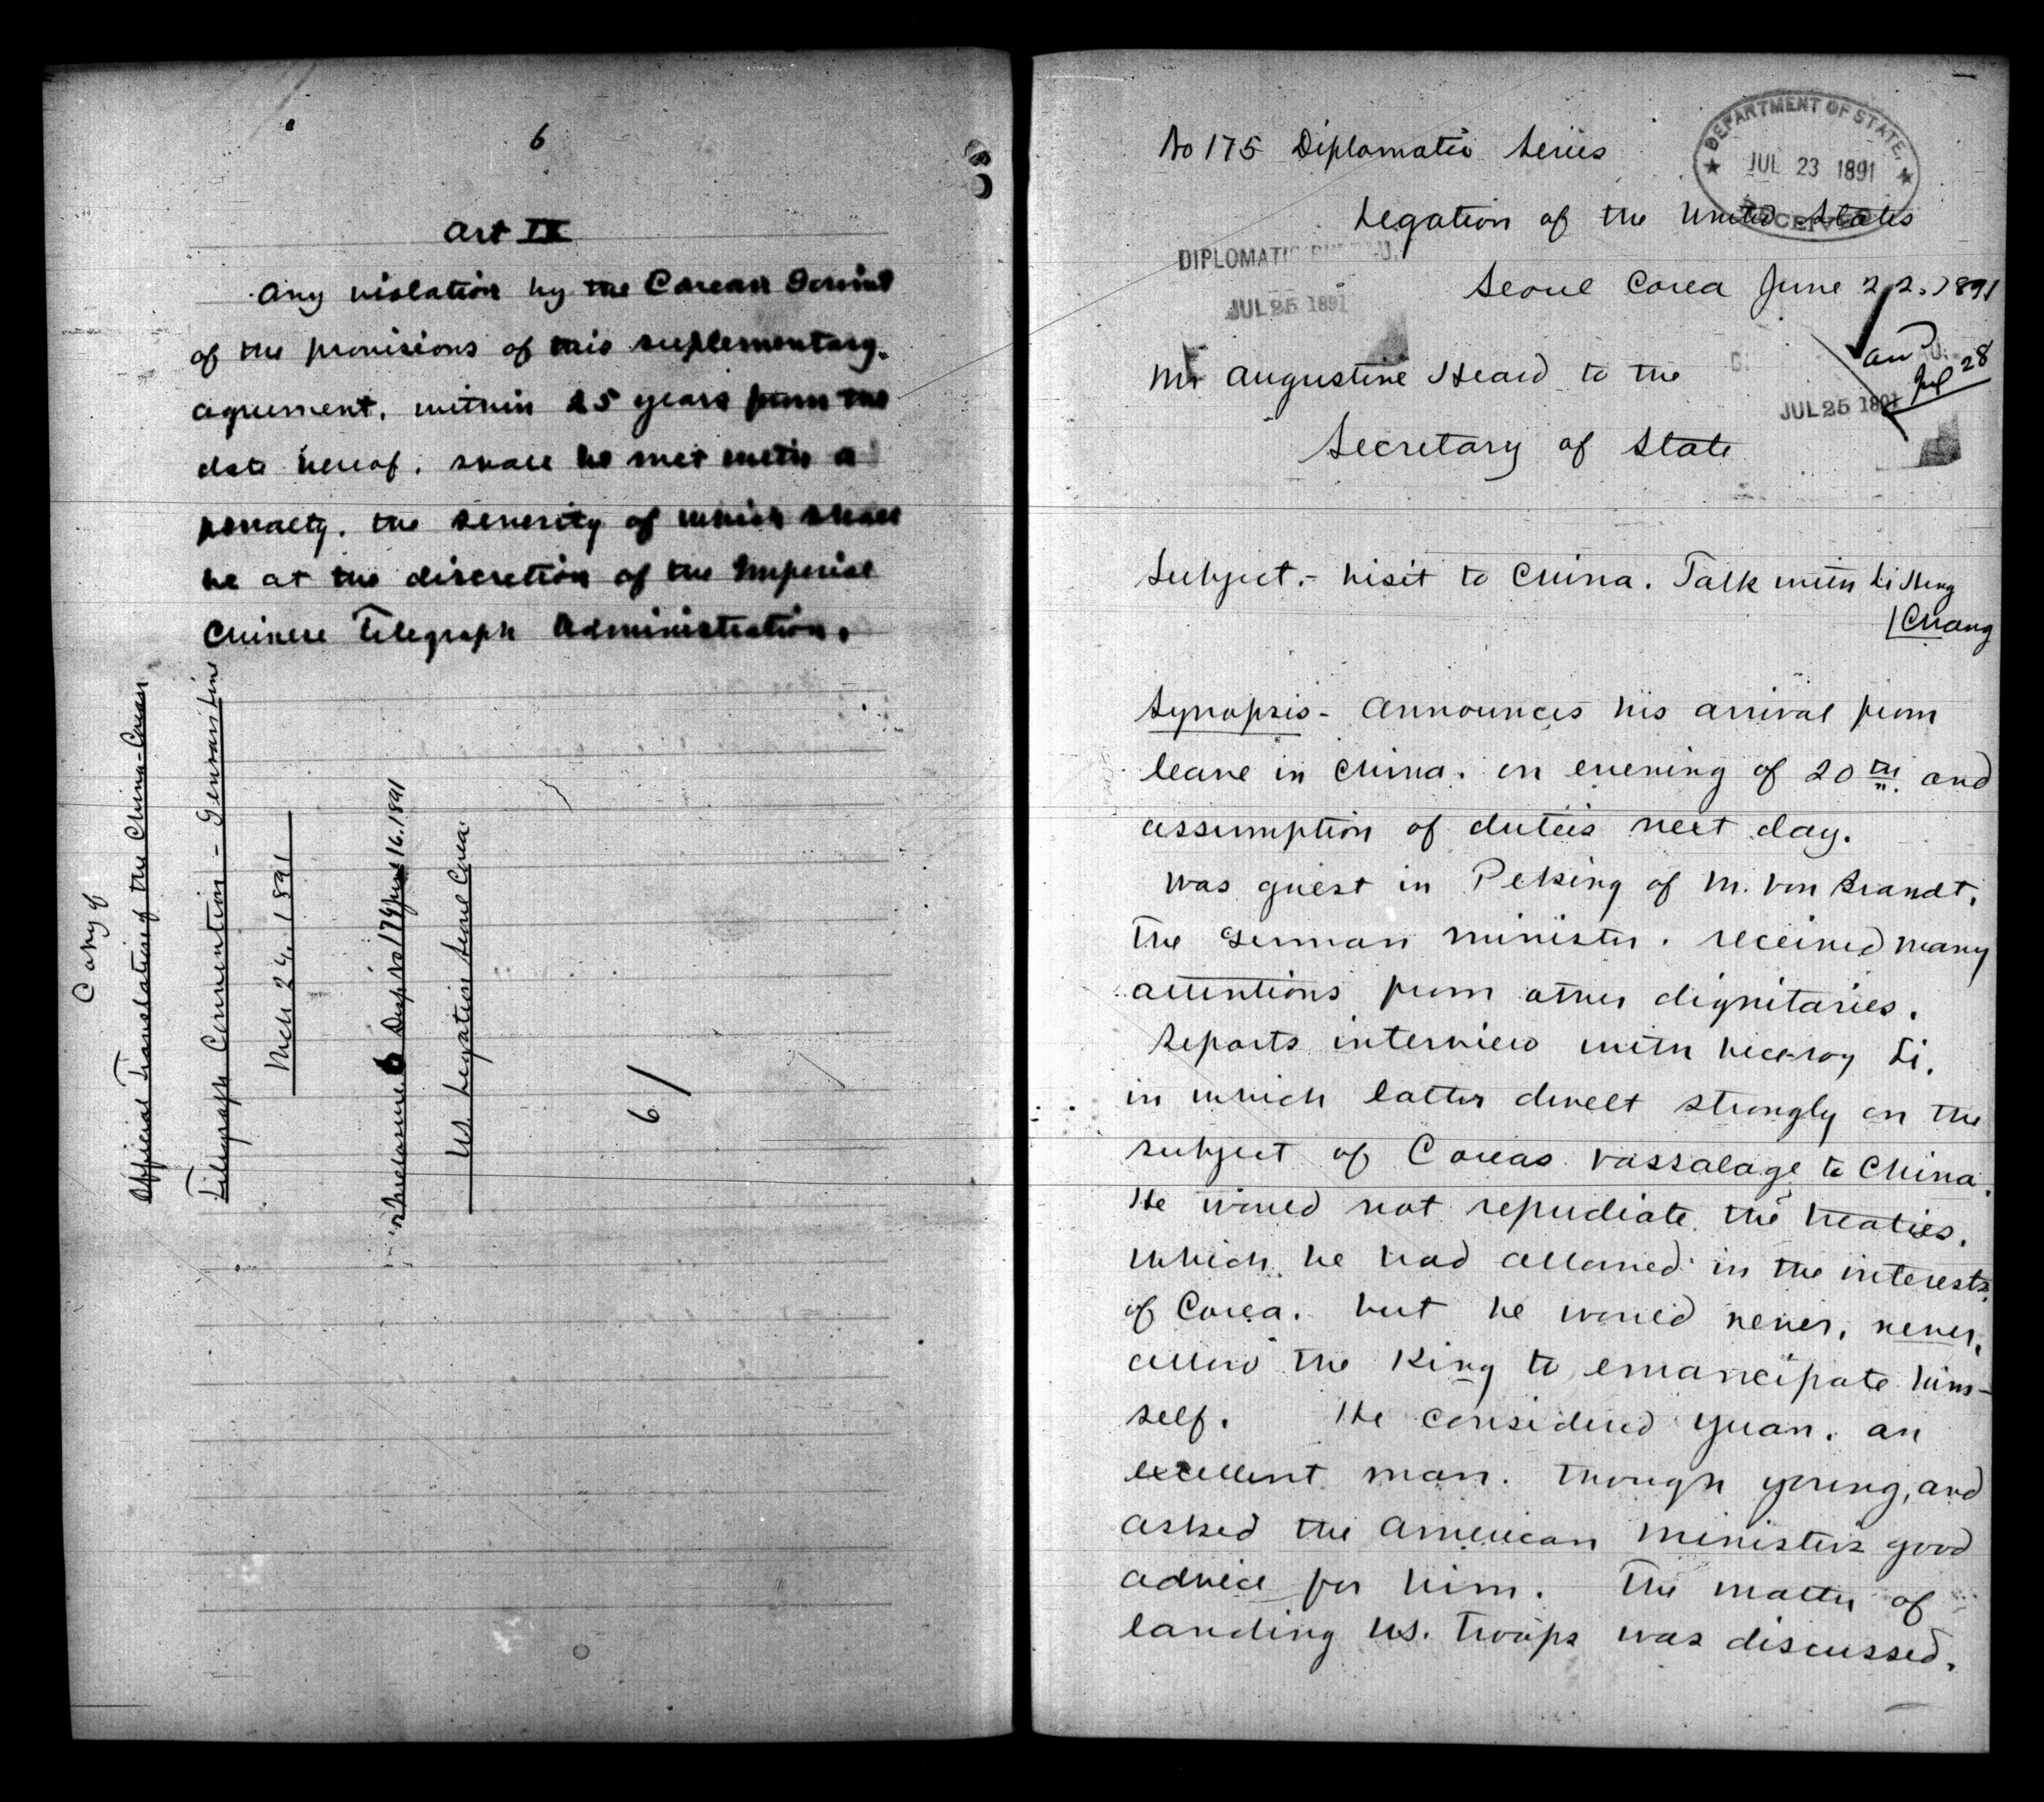 6
Art IX
Any violation by the Corean Govmt
of the provisions of this suplementary
agreement, within 25 years from the
date hereof, shall be met with a
penalty, the severity of which shall
be at the discretion of the Imperial
Chinese Telegraph Administration.
Copy of
Official Translation of the China-Corean
Telegraph Convention - Gensan line
Mch 24, 1891
Inclosure 6 Desp No 174 June 16. 1891
U.S. Legation Seoul Corea.
6/
No 175 Diplomatic Series
DEPARTMENT OF STATE,
JUL 23 1891
RECEIVED
Legation of the United States
DIPLOMATIC BUREAU.
JUL 25 1891
Seoul Corea June 22. 1891
Mr Augustine Heard to the
Secretary of State
Jul 28
JUL 25 1891
Subject.- Visit to China. Talk with Li Hung
Chang
Synopsis - Announces his arrival from
leave in China. on evening of 20th and
assumption of duties next day.
Was guest in Peking of M. von Brandt,
the German minister. received many
attentions from other dignitaries.
Reports interview with Vice-roy Li,
in which latter dwelt strongly on the
subject of Coreas vassalage to China.
He would not repudiate the treaties,
which he had allowed in the interests
of Corea. but he would never, never,
allow the King to emancipate him-
self. He considered Yuan, an
excellent man. though young, and
asked the American ministers good
advice for him. The matter of
landing U.S. troops was discussed.